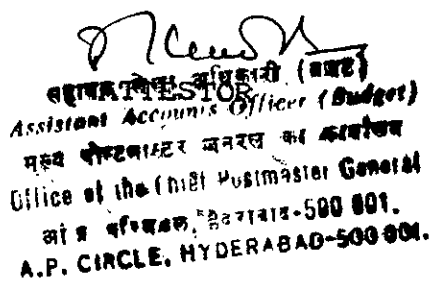 सहायक लेखा अधिकारी (बजट)
ATTESTOR
Assistant Accounts Officer (Budget)
मुख्य पोस्टमास्टर जनरल का कार्यालय
Office of the Chief Postmaster General
हैदराबाद-500 001.
A.P. CIRCLE, HYDERABAD-500 001.